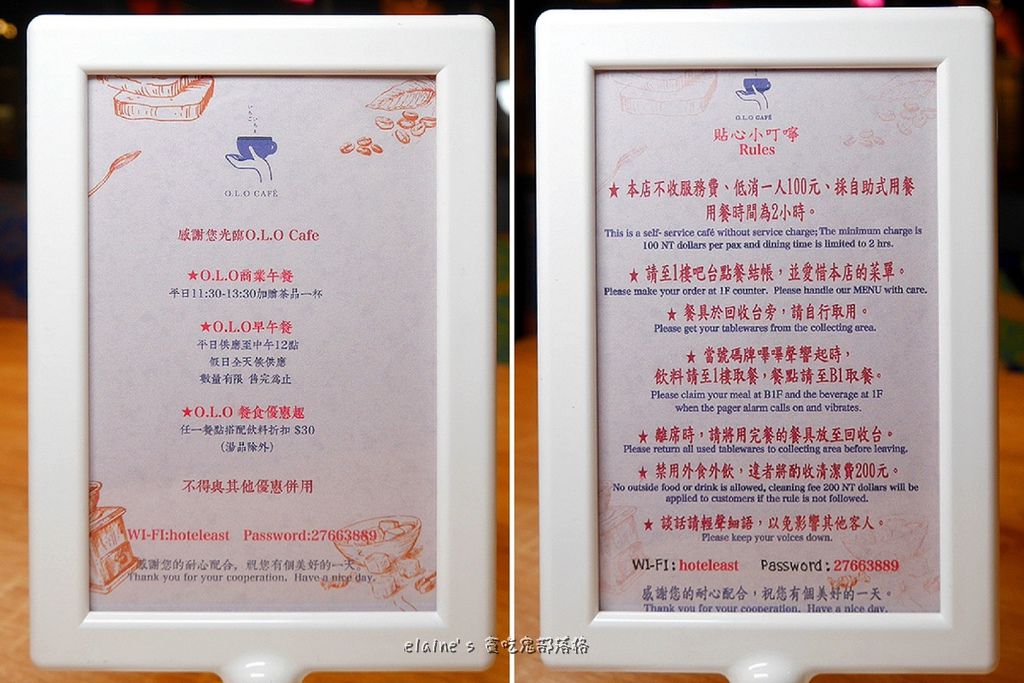 O.L.O CAFÉ
感謝您光臨O.L.O Cafe
★O.L.O商業午餐
平日11:30-13:30加贈茶品一杯
★O.L.O早午餐
平日供應至中午12點
假日全天候供應
數量有限 售完為止
★O.L.O 餐食優惠趣
任一餐點搭配飲料折扣 $30
(湯品除外)
不得與其他優惠併用
WI-FI:hoteleast Password:27663889
感謝您的耐心配合，祝您有個美好的一天。
Thank you for your cooperation. Have a nice day.
O.L.O CAFÉ
貼心小叮嚀
Rules
★ 本店不收服務費、低消一人100元、採自助式用餐
用餐時間為2小時。
This is a self- service café without service charge; The minimum charge is
100 NT dollars per pax and dining time is limited to 2 hrs.
★ 請至1樓吧台點餐結帳，並愛惜本店的菜單。
Please make your order at 1F counter. Please handle our MENU with care.
★ 餐具於回收台旁，請自行取用。
Please get your tablewares from the collecting area.
★ 當號碼牌嗶嗶聲響起時，
飲料請至1樓取餐，餐點請至B1取餐。
Please claim your meal at B1F and the beverage at 1F
when the pager alarm calls on and vibrates.
★ 離席時，請將用完餐的餐具放至回收台。
Please return all used tablewares to collecting area before leaving.
★ 禁用外食外飲，違者將酌收清潔費200元。
No outside food or drink is allowed, cleaning fee 200 NT dollars will be
applied to customers if the rule is not followed.
★ 談話請輕聲細語，以免影響其他客人。
Please keep your voices down.
WI-FI: hoteleast Password: 27663889
感謝您的耐心配合，祝您有個美好的一天。
Thank you for your cooperation. Have a nice day.
elaine's 貪吃鬼部落格